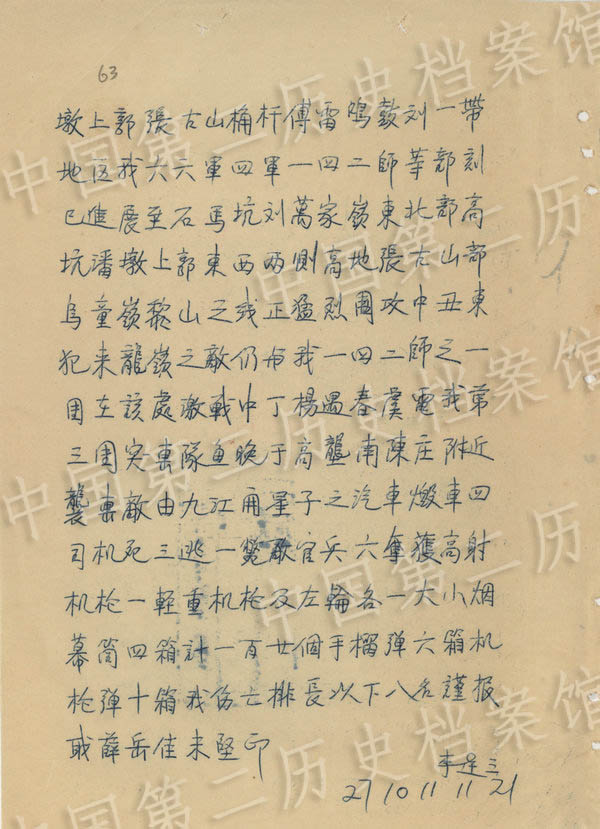 63
墩上郭張古山桷杆傅雷鳴鼓刘一帶
地区我六六軍四軍一四二師華部刻
已進展至石馬坑刘萬家嶺東北部高
坑潘墩上郭東西两側高地張古山部
烏童嶺黎山之线正猛烈圍攻中丑東
犯来龍嶺之敵仍与我一四二師之一
团在該處激戰中丁楊遇春虞電我第
三团突击隊鱼晚于高壟南陳庄附近
襲击敵由九江開星子之汽車燬車四
司机死三逃一斃敵官兵六奪獲高射
机枪一輕重机枪及左輪各一大小烟
幕筒四箱計一百廿個手榴弹六箱机
枪弹十箱我伤亡排長以下八名謹报
职薛岳佳未堅印
李逢三
27 10 11 11 21
中国第二历史档案馆